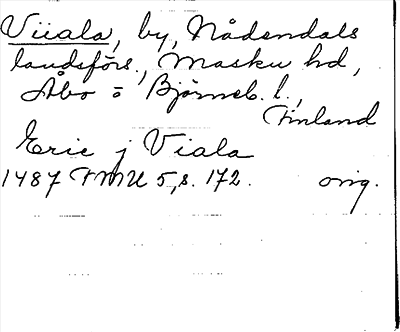 Viiala, by, Nådendals
landsförs., Masku hd,
Åbo o Björneb. l.,
Finland
Eric j Viala
1487 FMU 5, s. 172. orig.